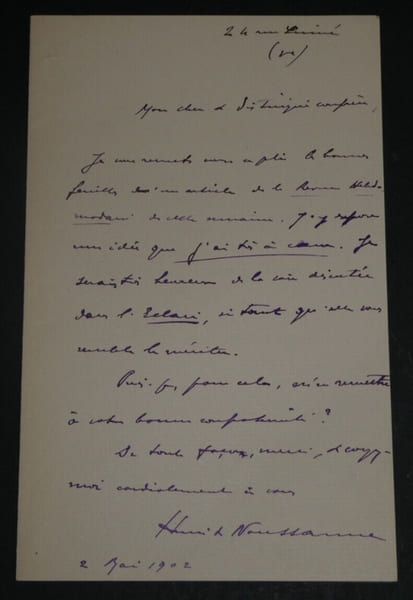 24 rue Linné
(Ve)
Mon cher et distingué confrère,
Je vous remets sous ce pli les bonnes
feuilles d'un article de la Revue Hebdo-
madaire de cette semaine. J'y expose
une idée que j'ai très à cœur. Je
serais très heureux de la voir discutée
dans l'Eclair, si tout qu'elle vous
semble le mériter.
Puis-je, pour cela, m'en remettre
à votre bonne confraternité ?
De toute façon, merci, et croyez-
moi cordialement à vous
Henri de Noussanne
2 Mai 1902